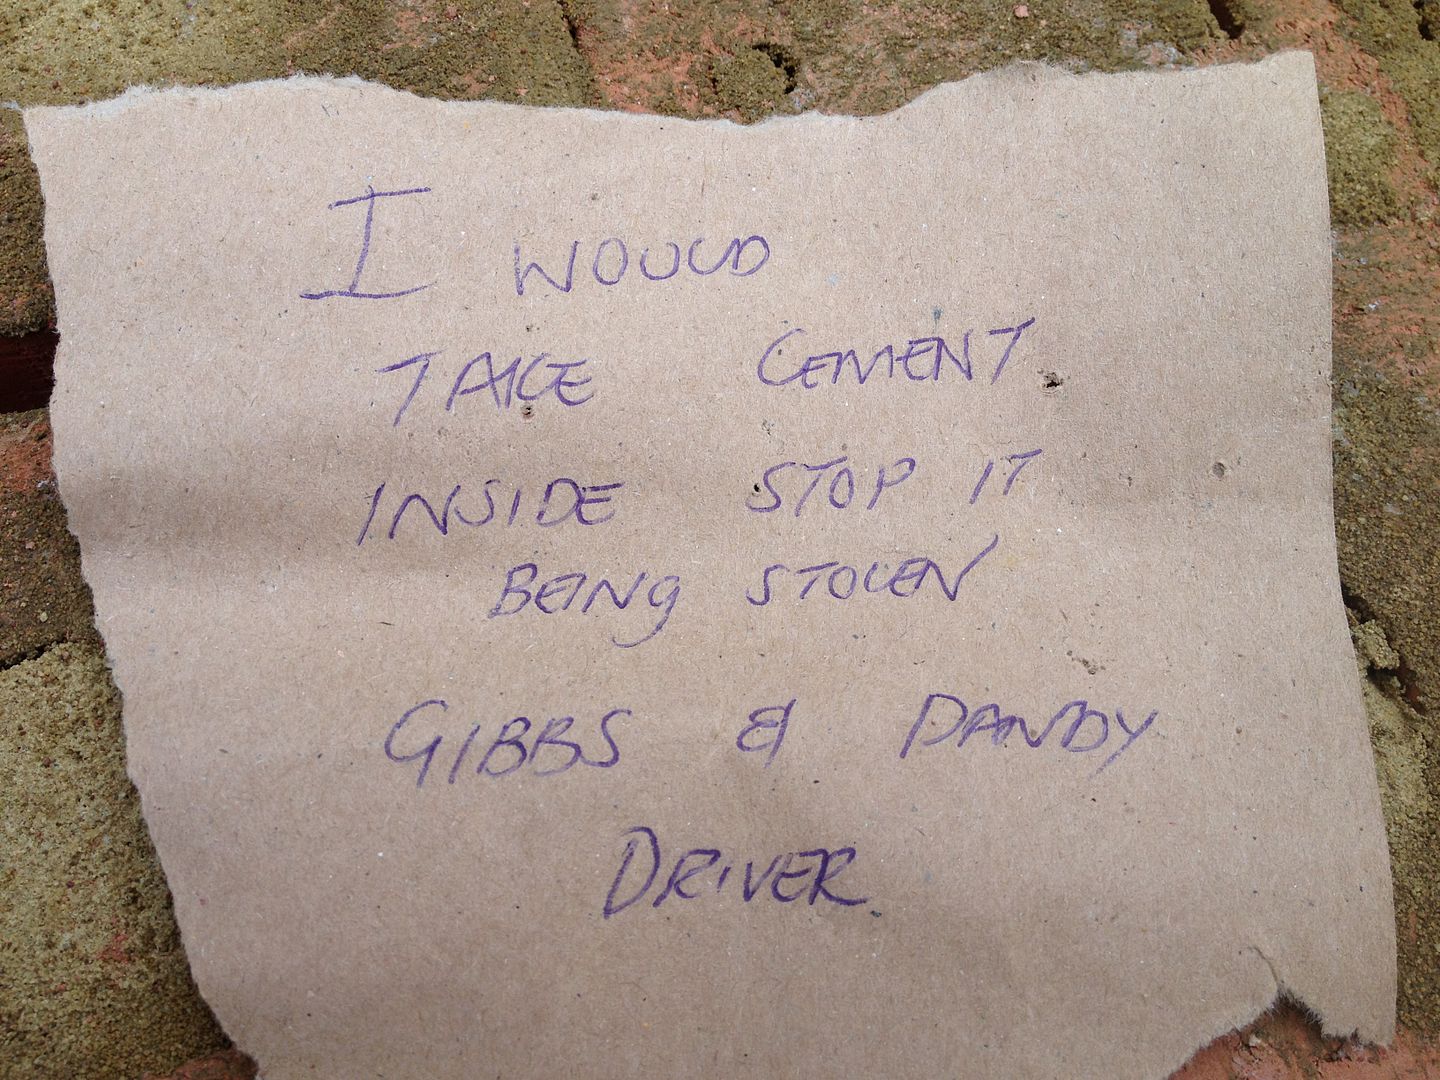 I WOULD
TAKE CEMENT
INSIDE STOP IT
BEING STOLEN
GIBBS & DANDY
DRIVER